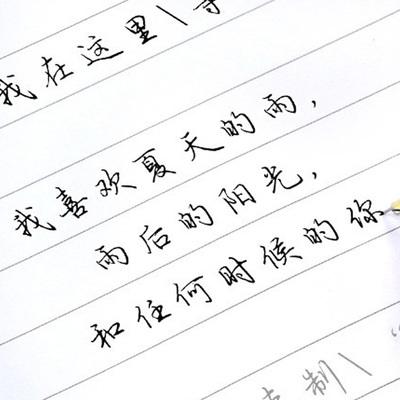 我在这里
我喜欢夏天的雨，
雨后的阳光，
和任何时候的你
制